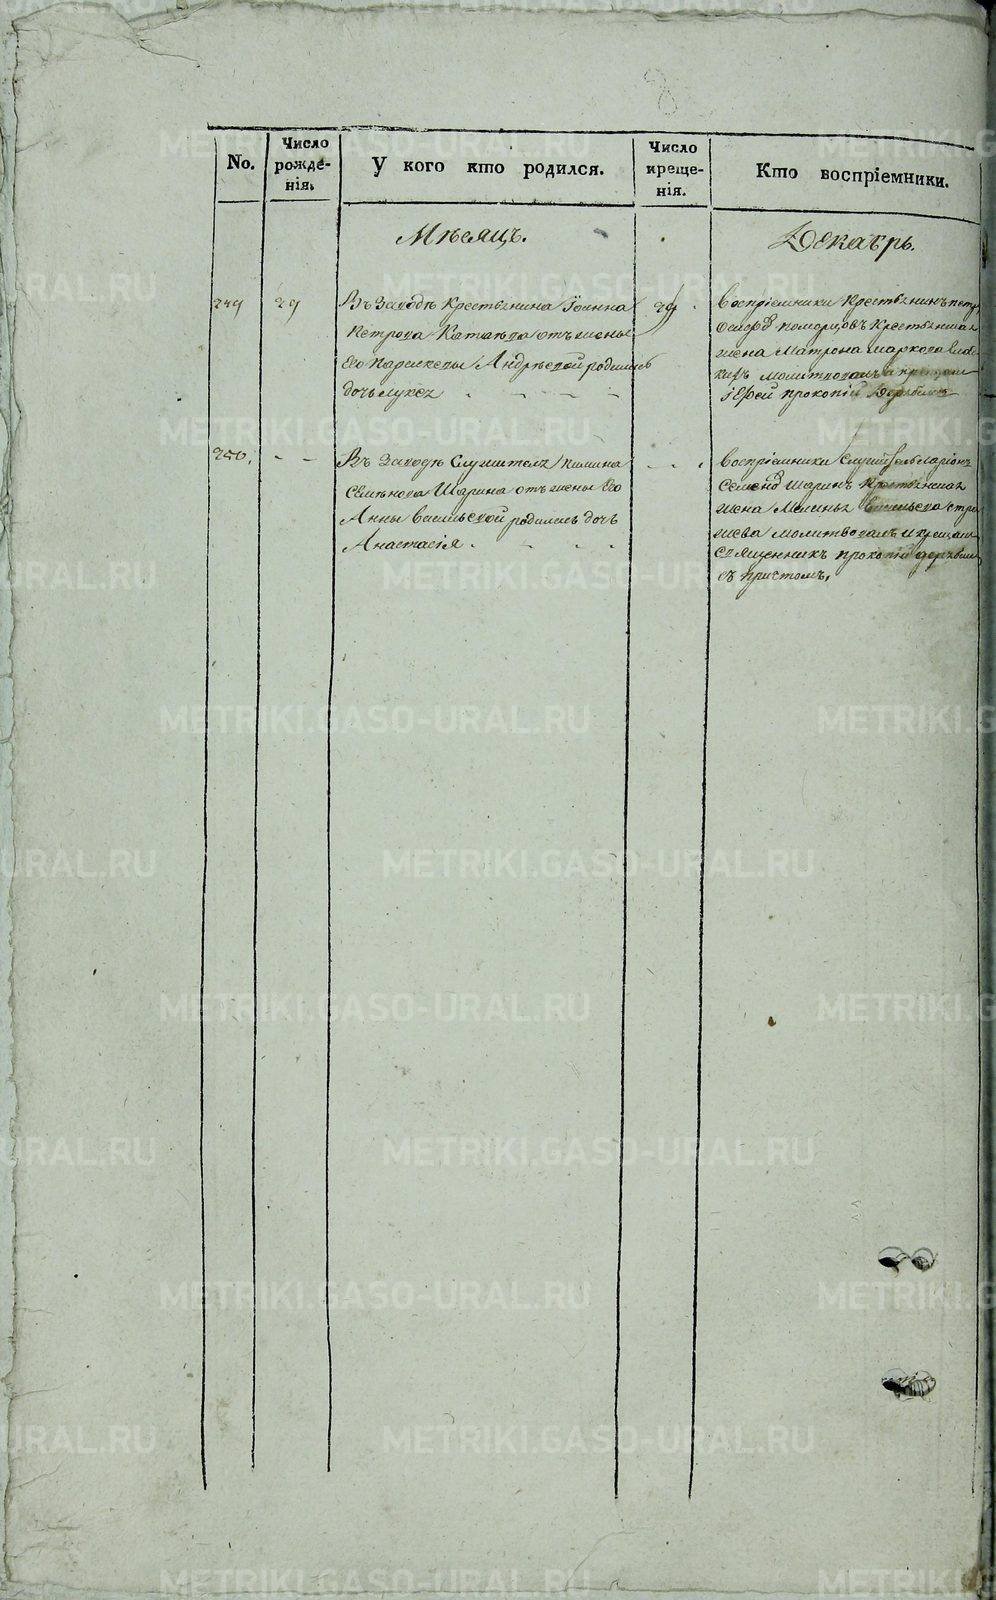 No.
Число рожде-нія.
У кого кто родился.
Число креще-нія.
Кто воспріемники.
Мѣсяцъ.
Декабрь.
249
29
Въ Заводѣ Крестьянина Іоанна
Петрова отъ жены
его Параскевы Андрѣевой родилась
дочь
29
Воспріемники Крестьянинъ Петръ
поморцовъ Крестьянская
жена Матрона Маркова
молитвовалъ и крещалъ
іерей прокопій
250.
Въ Заводѣ Служителя
Семенова Шарина отъ жены Его
Анны васильевой родилась дочь
Анастасія
воспріемники Служитель Ларіонъ
Семеновъ Шаринъ Крестьянская
жена
молитвовалъ и крещалъ
священникъ прокопій
съ причтомъ.
METRIKI.GASO-URAL.RU